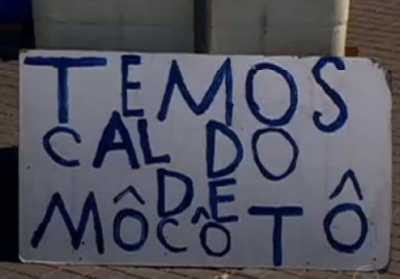 TEMOS
CALDO
DE
MÔCÔTÔ